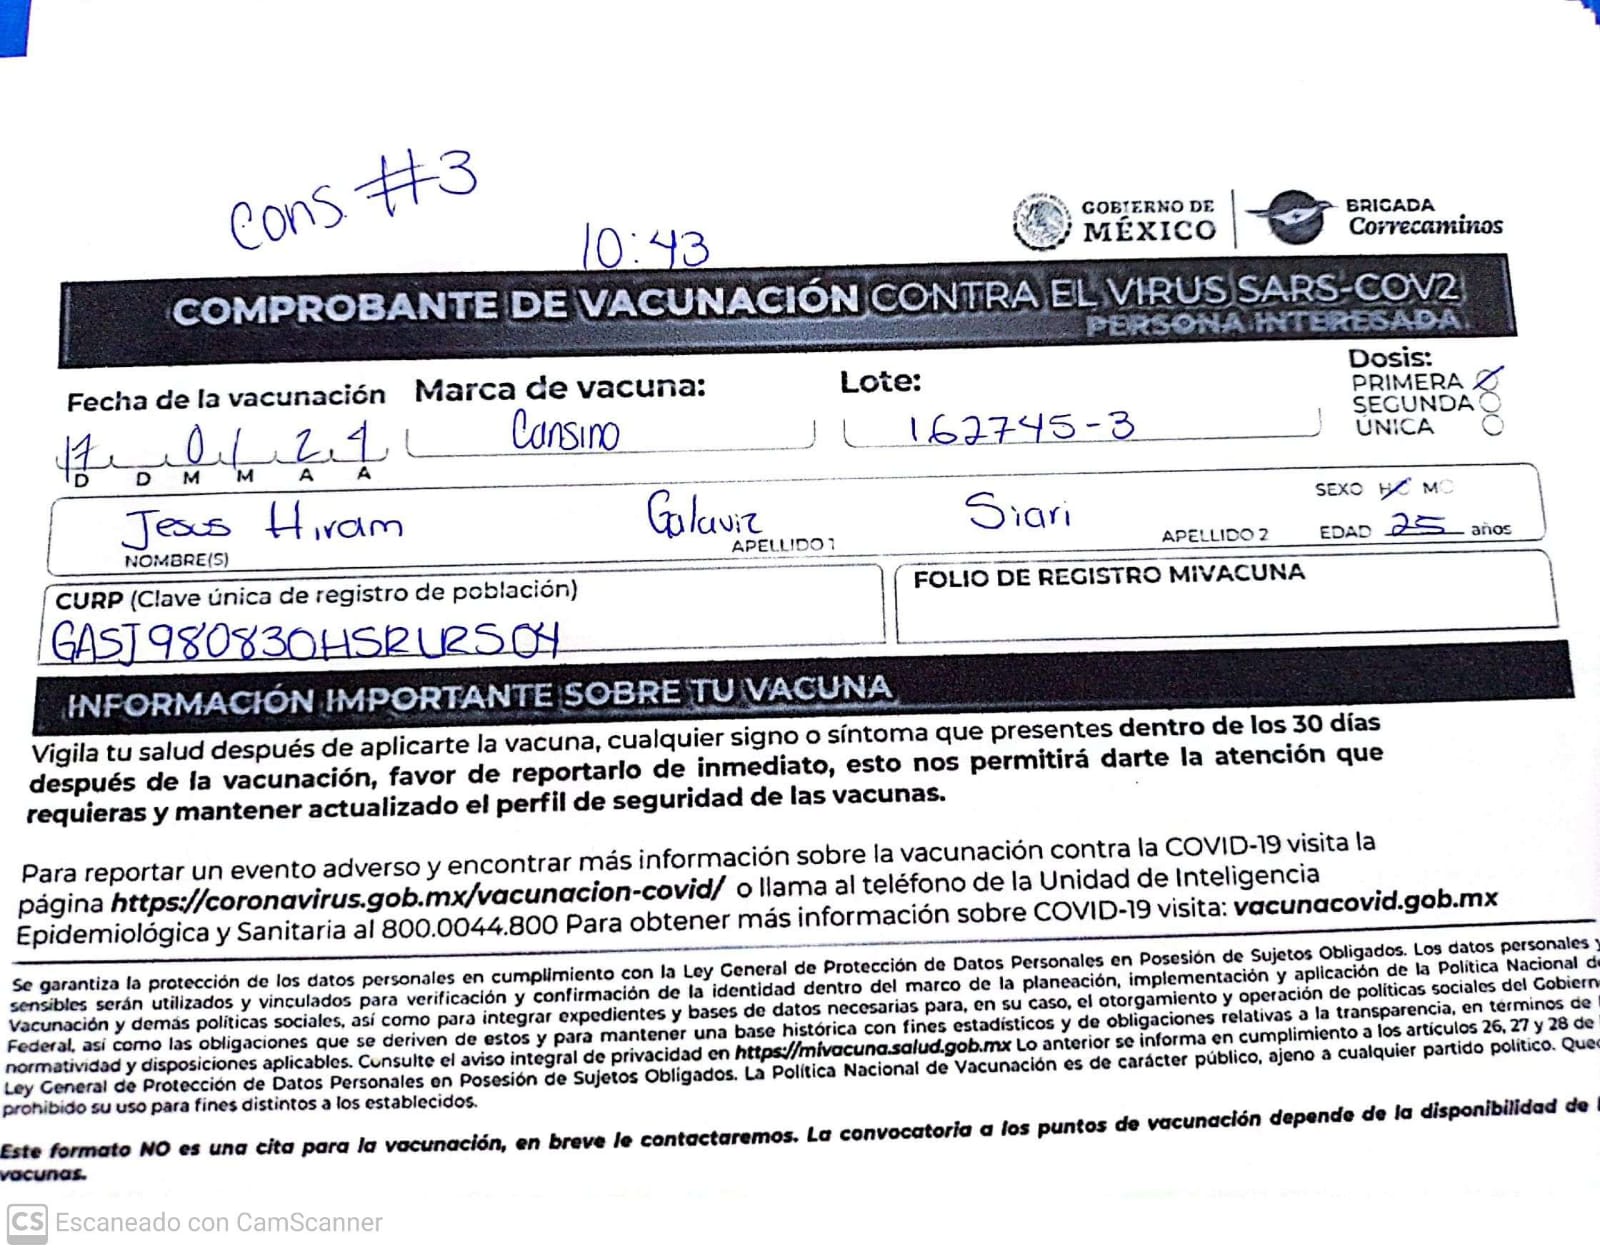 Cons. #3
10:43
GOBIERNO DE MÉXICO
BRIGADA Correcaminos
COMPROBANTE DE VACUNACIÓN CONTRA EL VIRUS SARS-COV2
PERSONA INTERESADA
Fecha de la vacunación Marca de vacuna: Lote: Dosis:
PRIMERA
SEGUNDA
ÚNICA
17 01 21 Cansino 162745-3
D D M M A A
SEXO H M
Jesus Hiram Galaviz Siari
NOMBRE(S) APELLIDO 1 APELLIDO 2 EDAD 25 años
CURP (Clave única de registro de población) FOLIO DE REGISTRO MIVACUNA
GASJ980830HSRLRS04
INFORMACIÓN IMPORTANTE SOBRE TU VACUNA
Vigila tu salud después de aplicarte la vacuna, cualquier signo o síntoma que presentes dentro de los 30 días
después de la vacunación, favor de reportarlo de inmediato, esto nos permitirá darte la atención que
requieras y mantener actualizado el perfil de seguridad de las vacunas.
Para reportar un evento adverso y encontrar más información sobre la vacunación contra la COVID-19 visita la
página https://coronavirus.gob.mx/vacunacion-covid/ o llama al teléfono de la Unidad de Inteligencia
Epidemiológica y Sanitaria al 800.0044.800 Para obtener más información sobre COVID-19 visita: vacunacovid.gob.mx
Se garantiza la protección de los datos personales en cumplimiento con la Ley General de Protección de Datos Personales en Posesión de Sujetos Obligados. Los datos personales y
sensibles serán utilizados y vinculados para verificación y confirmación de la identidad dentro del marco de la planeación, implementación y aplicación de la Política Nacional de
Vacunación y demás políticas sociales, así como para integrar expedientes y bases de datos necesarias para, en su caso, el otorgamiento y operación de políticas sociales del Gobiern
Federal, así como las obligaciones que se deriven de estos y para mantener una base histórica con fines estadísticos y de obligaciones relativas a la transparencia, en términos de
normatividad y disposiciones aplicables. Consulte el aviso integral de privacidad en https://mivacuna.salud.gob.mx Lo anterior se informa en cumplimiento a los artículos 26, 27 y 28 de
Ley General de Protección de Datos Personales en Posesión de Sujetos Obligados. La Política Nacional de Vacunación es de carácter público, ajeno a cualquier partido político. Que
prohibido su uso para fines distintos a los establecidos.
Este formato NO es una cita para la vacunación, en breve le contactaremos. La convocatoria a los puntos de vacunación depende de la disponibilidad de
vacunas.
CS Escaneado con CamScanner